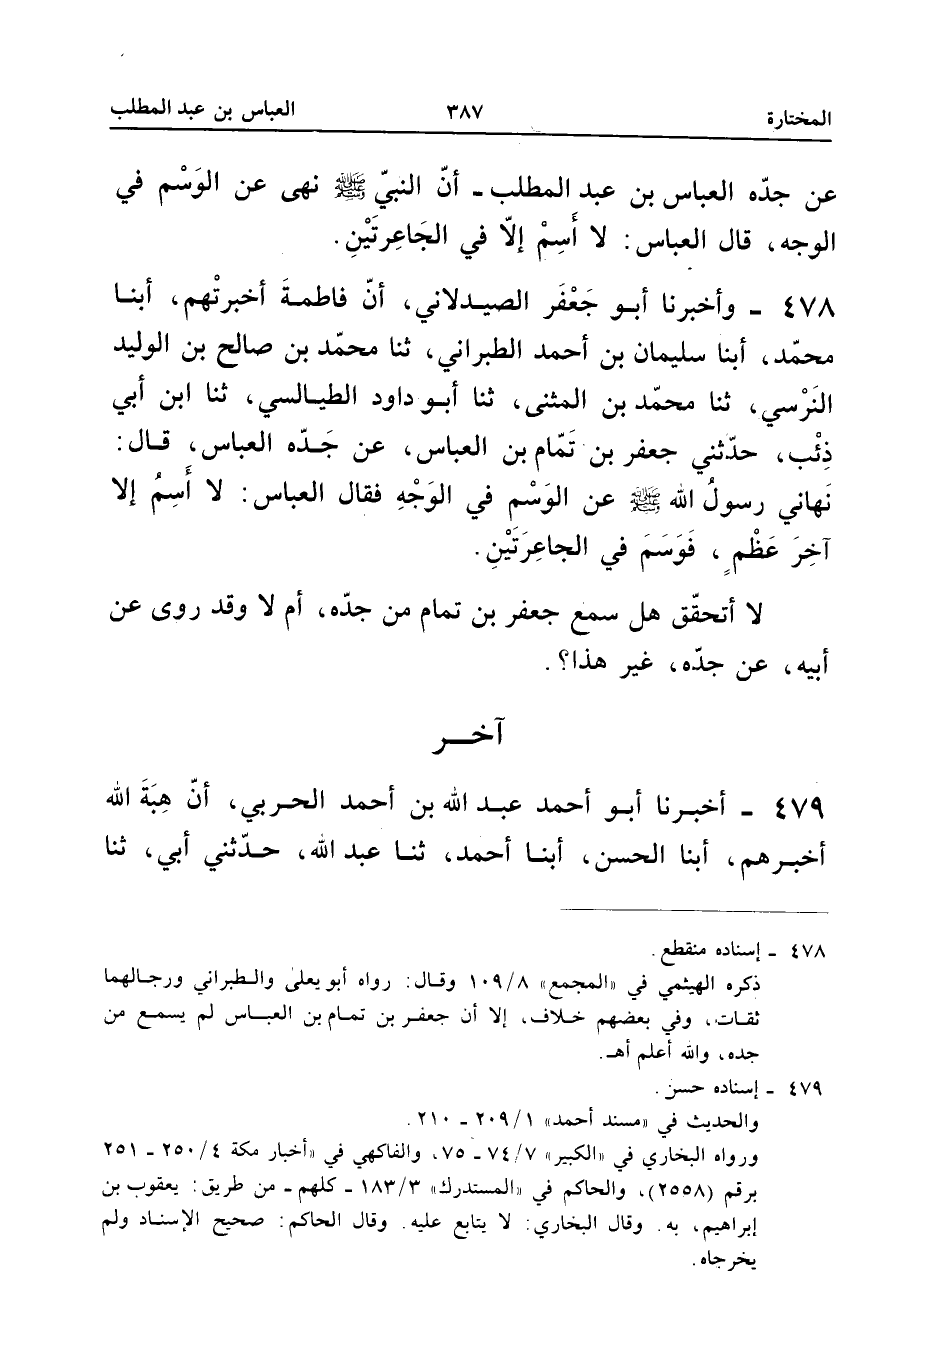 المختارة ٣٨٧ العباس بن عبد المطلب
عن جدّه العباس بن عبد المطلب - أنّ النبيّ ﷺ نهى عن الوَسْم في
الوجه، قال العباس: لا أَسِمْ إلّا في الجَاعِرتَيْنِ.
٤٧٨ - وأخبرنا أبو جَعْفَر الصيدلاني، أنّ فاطمةَ أخبرتْهم، أبنا
محمّد، أبنا سليمان بن أحمد الطبراني، ثنا محمّد بن صالح بن الوليد
النَرْسي، ثنا محمّد بن المثنى، ثنا أبو داود الطيالسي، ثنا ابن أبي
ذِئْب، حدّثني جعفر بن تَمّام بن العباس، عن جَدّه العباس، قال:
نَهاني رسولُ الله ﷺ عن الوَسْم في الوَجْهِ فقال العباس: لا أَسِمُ إلا
آخِرَ عَظْمٍ، فَوَسَمَ في الجاعِرَتَيْنِ.
لا أتحقّق هل سمع جعفر بن تمام من جدّه، أم لا وقد روى عن
أبيه، عن جدّه، غير هذا؟.
آخر
٤٧٩ - أخبرنا أبو أحمد عبد الله بن أحمد الحربي، أنّ هِبَةَ الله
أخبرهم، أبنا الحسن، أبنا أحمد، ثنا عبد الله، حدّثني أبي، ثنا
٤٧٨ - إسناده منقطع.
ذكره الهيثمي في «المجمع» ١٠٩/٨ وقال: رواه أبو يعلى والطبراني ورجالهما
ثقات، وفي بعضهم خلاف، إلا أن جعفر بن تمام بن العباس لم يسمع من
جده، والله أعلم أهـ.
٤٧٩ - إسناده حسن.
والحديث في «مسند أحمد» ٢٠٩/١ - ٢١٠.
ورواه البخاري في «الكبير» ٧٤/٧ - ٧٥، والفاكهي في «أخبار مكة ٢٥٠/٤ - ٢٥١
برقم (٢٥٥٨)، والحاكم في «المستدرك» ١٨٣/٣ - كلهم - من طريق: يعقوب بن
إبراهيم، به. وقال البخاري: لا يتابع عليه. وقال الحاكم: صحيح الإسناد ولم
يخرجاه.